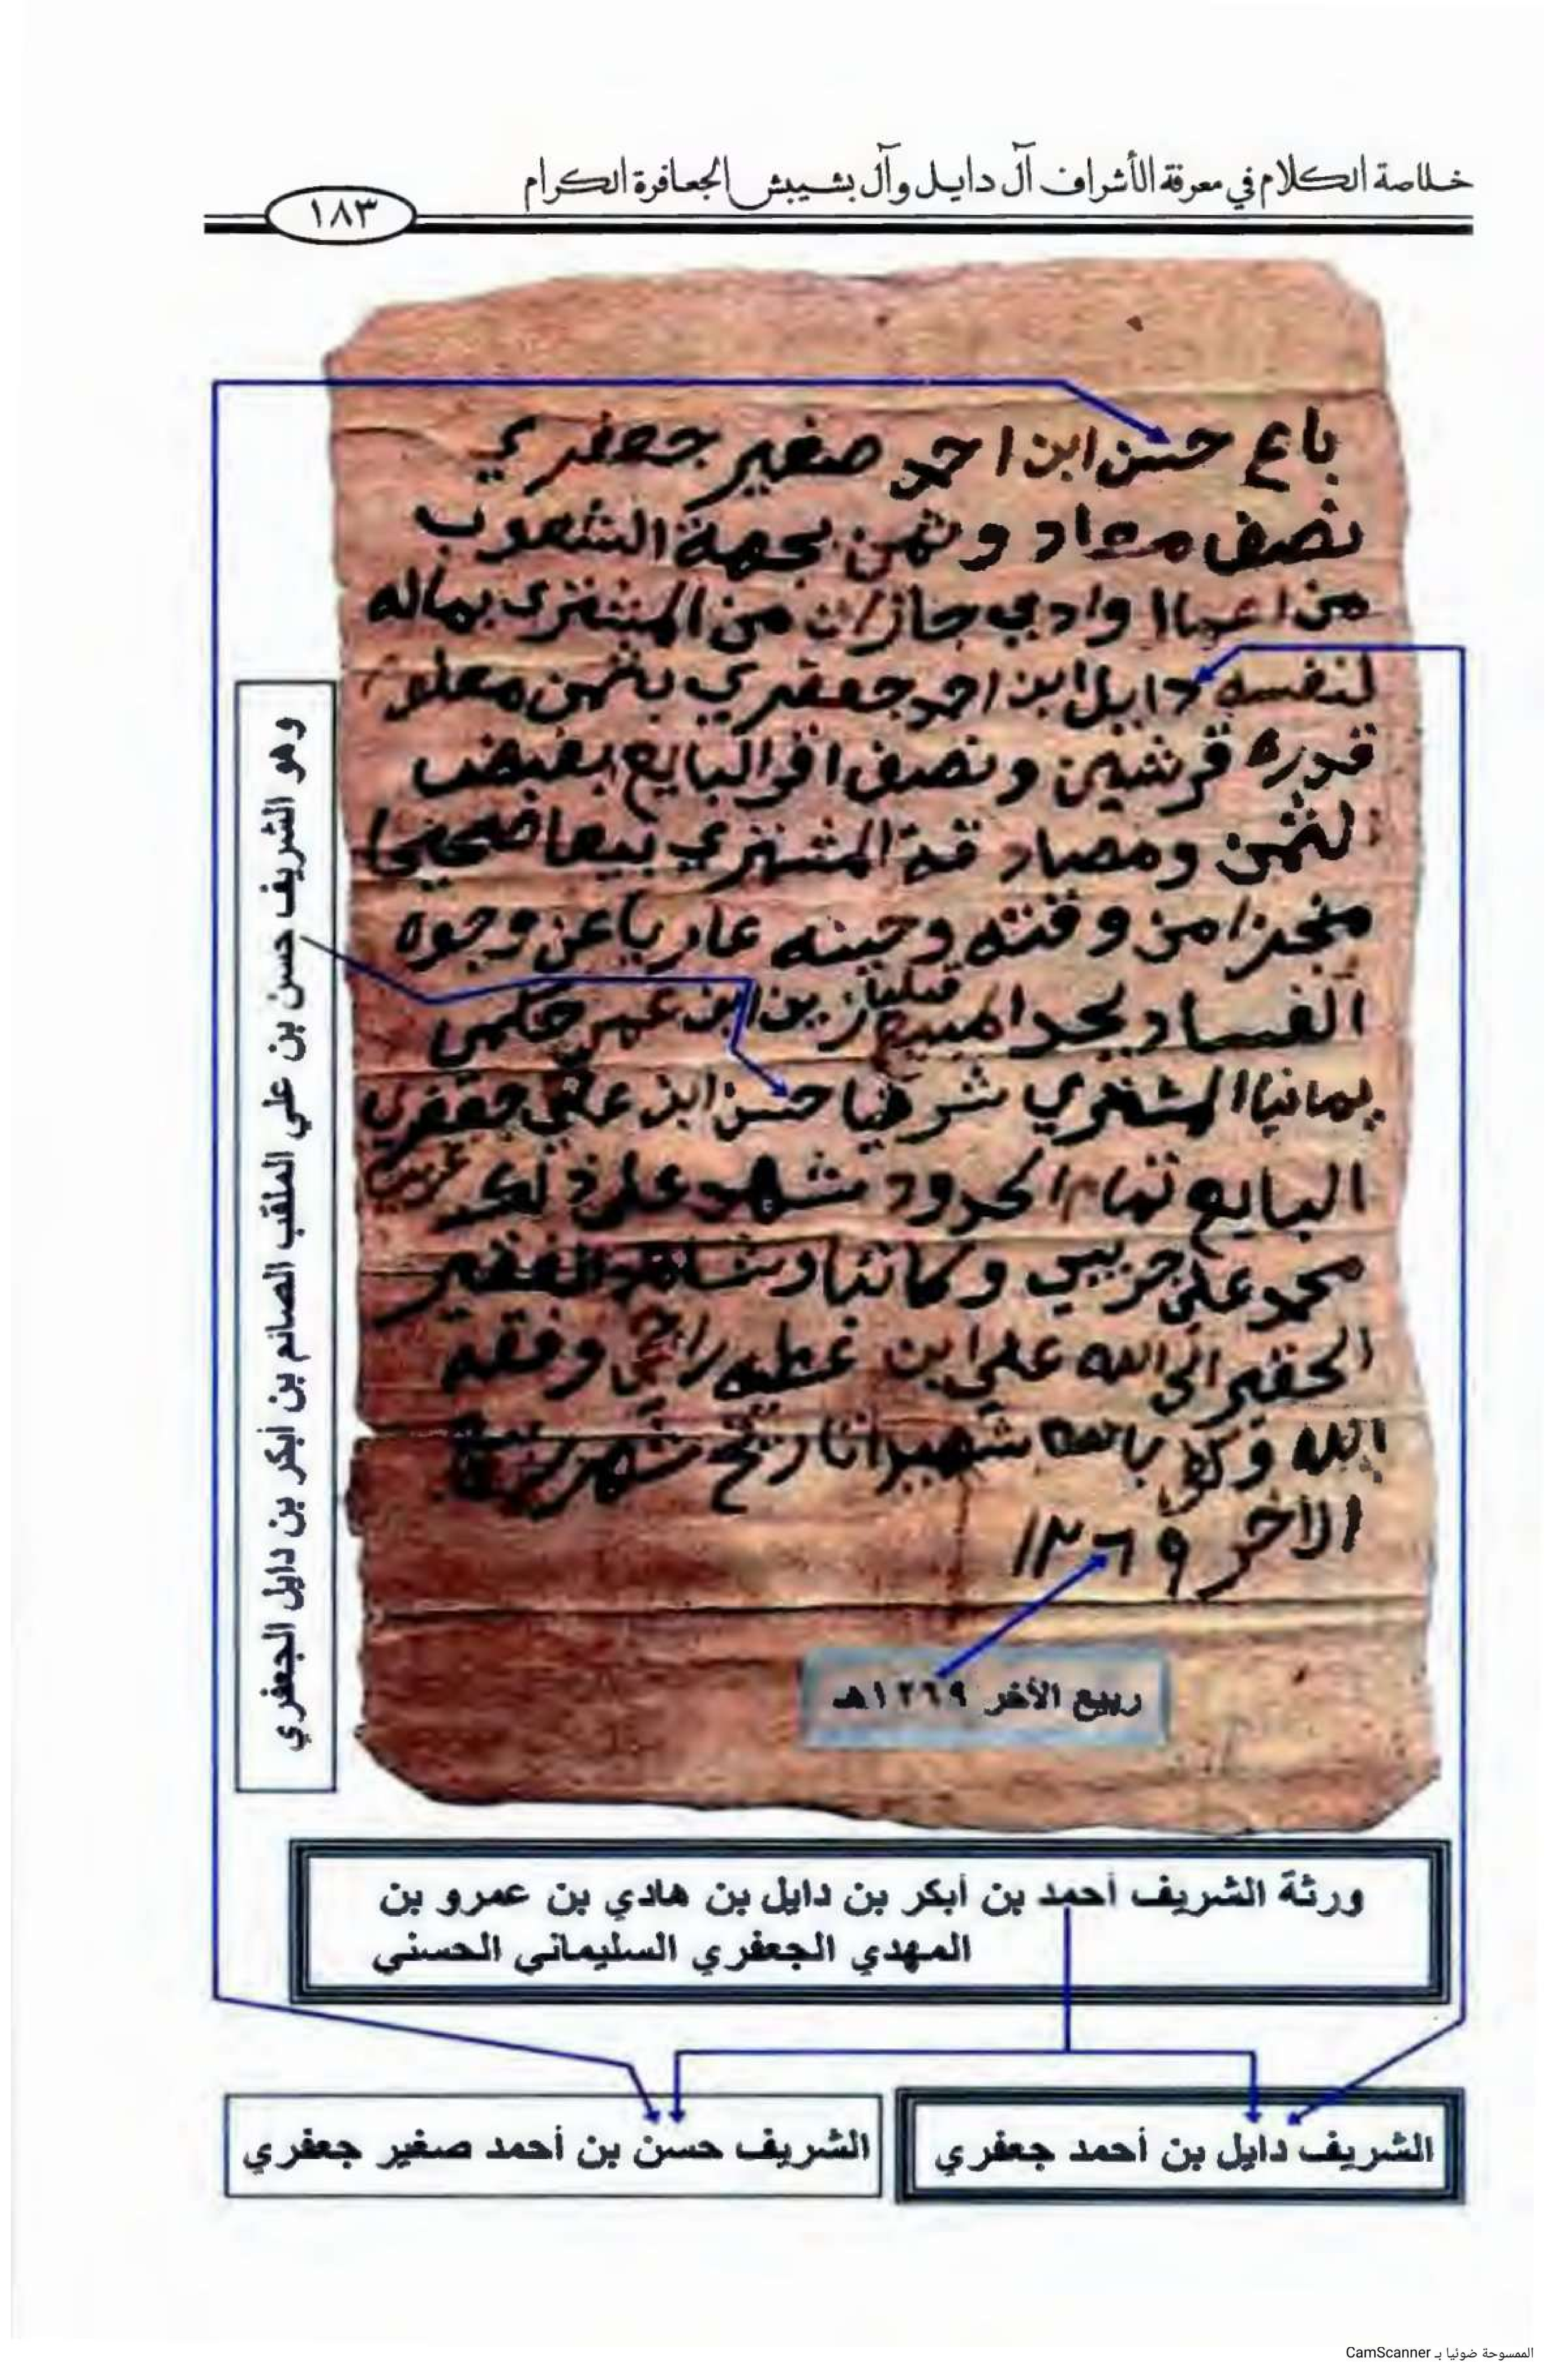 خلاصة الكلام في معرفة الأشراف آل دايل وآل بشيبش الجعافرة الكرام
١٨٣
باع حسن ابن احمد صغير جعفري
نصف معاد وثمن بجهة الشعوب
من اعمال وادي جازان من المشتري بماله
لنفسه دايل ابن احمد جعفري بثمن معلوم
قدره قرشين ونصف اقر البايع بقبض
لثمن ومصادقة المشتري بيعا صحيحا
منجزا من وقته وحينه عاريا عن وجوه
الفساد يحد المبيع قبليا زين ابن عمر حكمي
يمانيا المشتري شرقيا حسن ابن علي جعفري
البايع تمام الحدود شهد على ذلك
محمد علي حريبي وكاتبا وشاهد الفقير
الحقير الى الله علي ابن عطيه راجحي وفقه
الله وكفى بالله شهيدا تاريخ شهر ربيع
الاخر ١٢٦٩
ربيع الأخر ١٢٦٩هـ
وهو الشريف حسن بن علي الملقب الصائم بن أبكر بن دايل الجعفري
ورثة الشريف أحمد بن أبكر بن دايل بن هادي بن عمرو بن
المهدي الجعفري السليماني الحسني
الشريف دايل بن أحمد جعفري
الشريف حسن بن أحمد صغير جعفري
الممسوحة ضوئيا بـ CamScanner